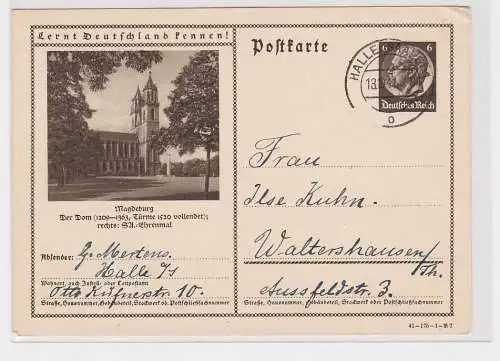 Lernt Deutschland kennen!
Postkarte
6 6
Deutsches Reich
HALLE
13
o
Magdeburg
Der Dom (1209—1363, Türme 1520 vollendet);
rechts: SA.-Ehrenmal
Absender: G. Mertens.
Halle a/S
Wohnort, auch Zustell- oder Leitpostamt
Otto Küfnerstr. 10.
Straße, Hausnummer, Gebäudeteil, Stockwerk od. Postschließfachnummer
Frau
Ilse Kuhn.
Waltershausen/
Th.
Aussfeldstr. 3.
Straße, Hausnummer, Gebäudeteil, Stockwerk oder Postschließfachnummer
41-176-1-B7